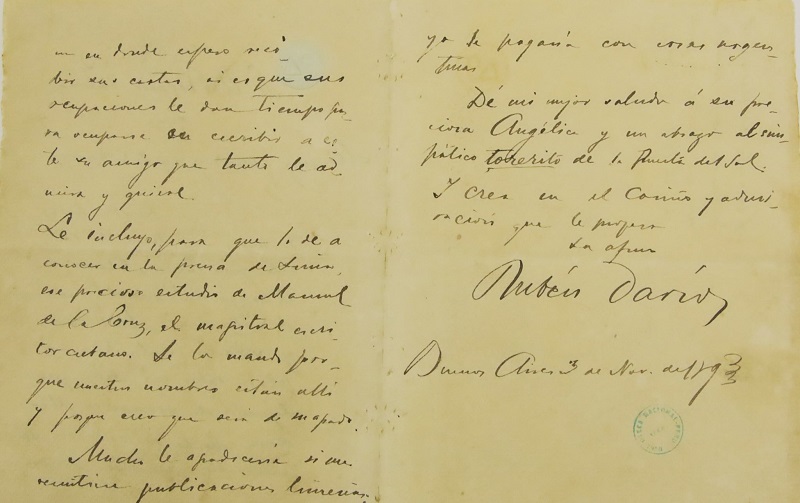 en donde espero reci-
bir sus cartas, si es que sus
ocupaciones le dan tiempo pa-
ra ocuparse en escribir a es-
te su amigo que tanto le ad-
mira y quiere.
Le incluyo, para que lo dé a
conocer en la prensa de Lima,
ese precioso estudio de Manuel
de la Cruz, el magistral escri-
tor cubano. Se lo mando por-
que nuestros nombres están allí
y porque creo que será de su agrado.
Mucho le agradecería si me
remitiera publicaciones limeñas.
yo le pagaría con cosas argen-
tinas.
Dé mi mejor saludo á su pre-
ciosa Angélica y un abrazo al sim-
pático torerito de la Puerta del Sol.
Y crea en el cariño y admi-
ración que le profesa
su afmo
Rubén Darío
Buenos Aires 3 de Nov. de 1893